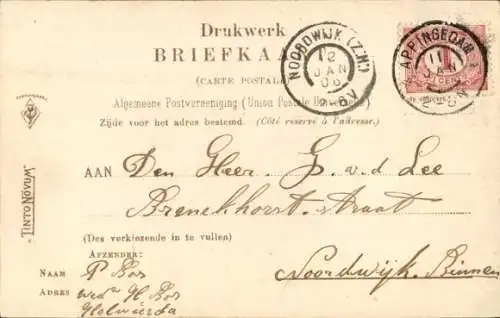 Drukwerk
BRIEFKAA
(CARTE POSTAL
Algemeene Postvereeniging (Union Postale Universelle)
Zijde voor het adres bestemd. (Côté réservé à l'adresse.)
NOORDWIJK (Z.H.)
12
JAN
06
APPINGEDAM
11
JAN
1 CENT
TINTO NOVUM
AAN Den Heer G. v. d Lee
Brenckhorst straat
(Des verkiezende in te vullen)
AFZENDER:
Noordwijk. Binnen
NAAM P Bos
ADRES wed^e H Bos
Holwierda